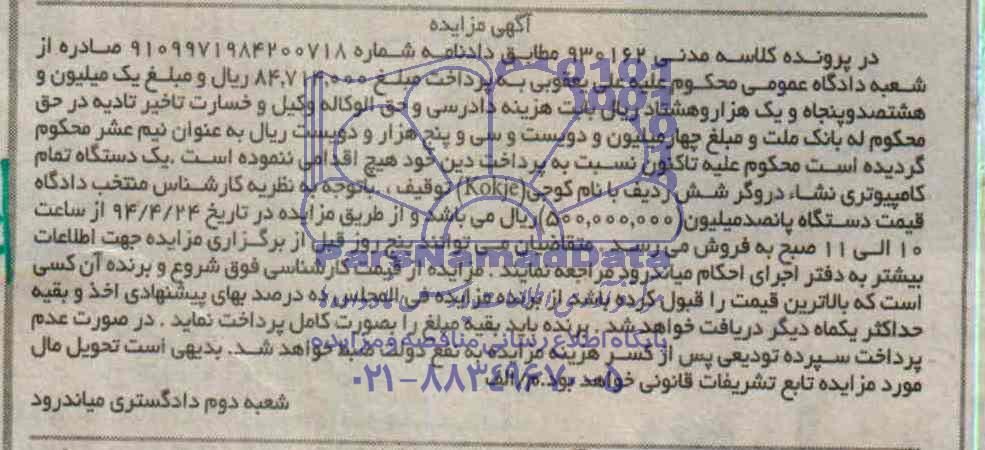 آگهی مزایده
در پرونده کلاسه مدنی ۹۳۰۱۶۲ مطابق دادنامه شماره ۹۱۰۹۹۷۱۹۸۴۲۰۰۷۱۸ صادره از
شعبه دادگاه عمومی محکوم علیه علی یعقوبی به پرداخت مبلغ ۸۴,۷۱۴,۰۰۰ ریال و مبلغ یک میلیون و
هشتصدوپنجاه و یک هزاروهشتاد ریال بابت هزینه دادرسی و حق الوکاله وکیل و خسارت تاخیر تادیه در حق
محکوم له بانک ملت و مبلغ چهارمیلیون و دویست و سی و پنج هزار و دویست ریال به عنوان نیم عشر محکوم
گردیده است محکوم علیه تاکنون نسبت به پرداخت دین خود هیچ اقدامی ننموده است .یک دستگاه تمام
کامپیوتری نشاء دروگر شش ردیف با نام کوجی(Kokje) توقیف ، .باتوجه به نظریه کارشناس منتخب دادگاه
قیمت دستگاه پانصدمیلیون(۵۰۰,۰۰۰,۰۰۰)ریال می باشد و از طریق مزایده در تاریخ ۹۴/۴/۲۴ از ساعت
۱۰ الی ۱۱ صبح به فروش می رسد . متقاضیان می توانند پنج روز قبل از برگزاری مزایده جهت اطلاعات
بیشتر به دفتر اجرای احکام میاندرود مراجعه نمایند . مزایده از قیمت کارشناسی فوق شروع و برنده آن کسی
است که بالاترین قیمت را قبول کرده باشد از برنده مزایده فی المجلس ده درصد بهای پیشنهادی اخذ و بقیه
حداکثر یکماه دیگر دریافت خواهد شد . برنده باید بقیه مبلغ را بصورت کامل پرداخت نماید . در صورت عدم
پرداخت سپرده تودیعی پس از کسر هزینه مزایده به نفع دولت ضبط خواهد شد. بدیهی است تحویل مال
مورد مزایده تابع تشریفات قانونی خواهد بود.م/الف
شعبه دوم دادگستری میاندرود
ParsNamadData
پایگاه اطلاع رسانی مناقصه و مزایده
۰۲۱-۸۸۳۴۹۶۷۰-۵